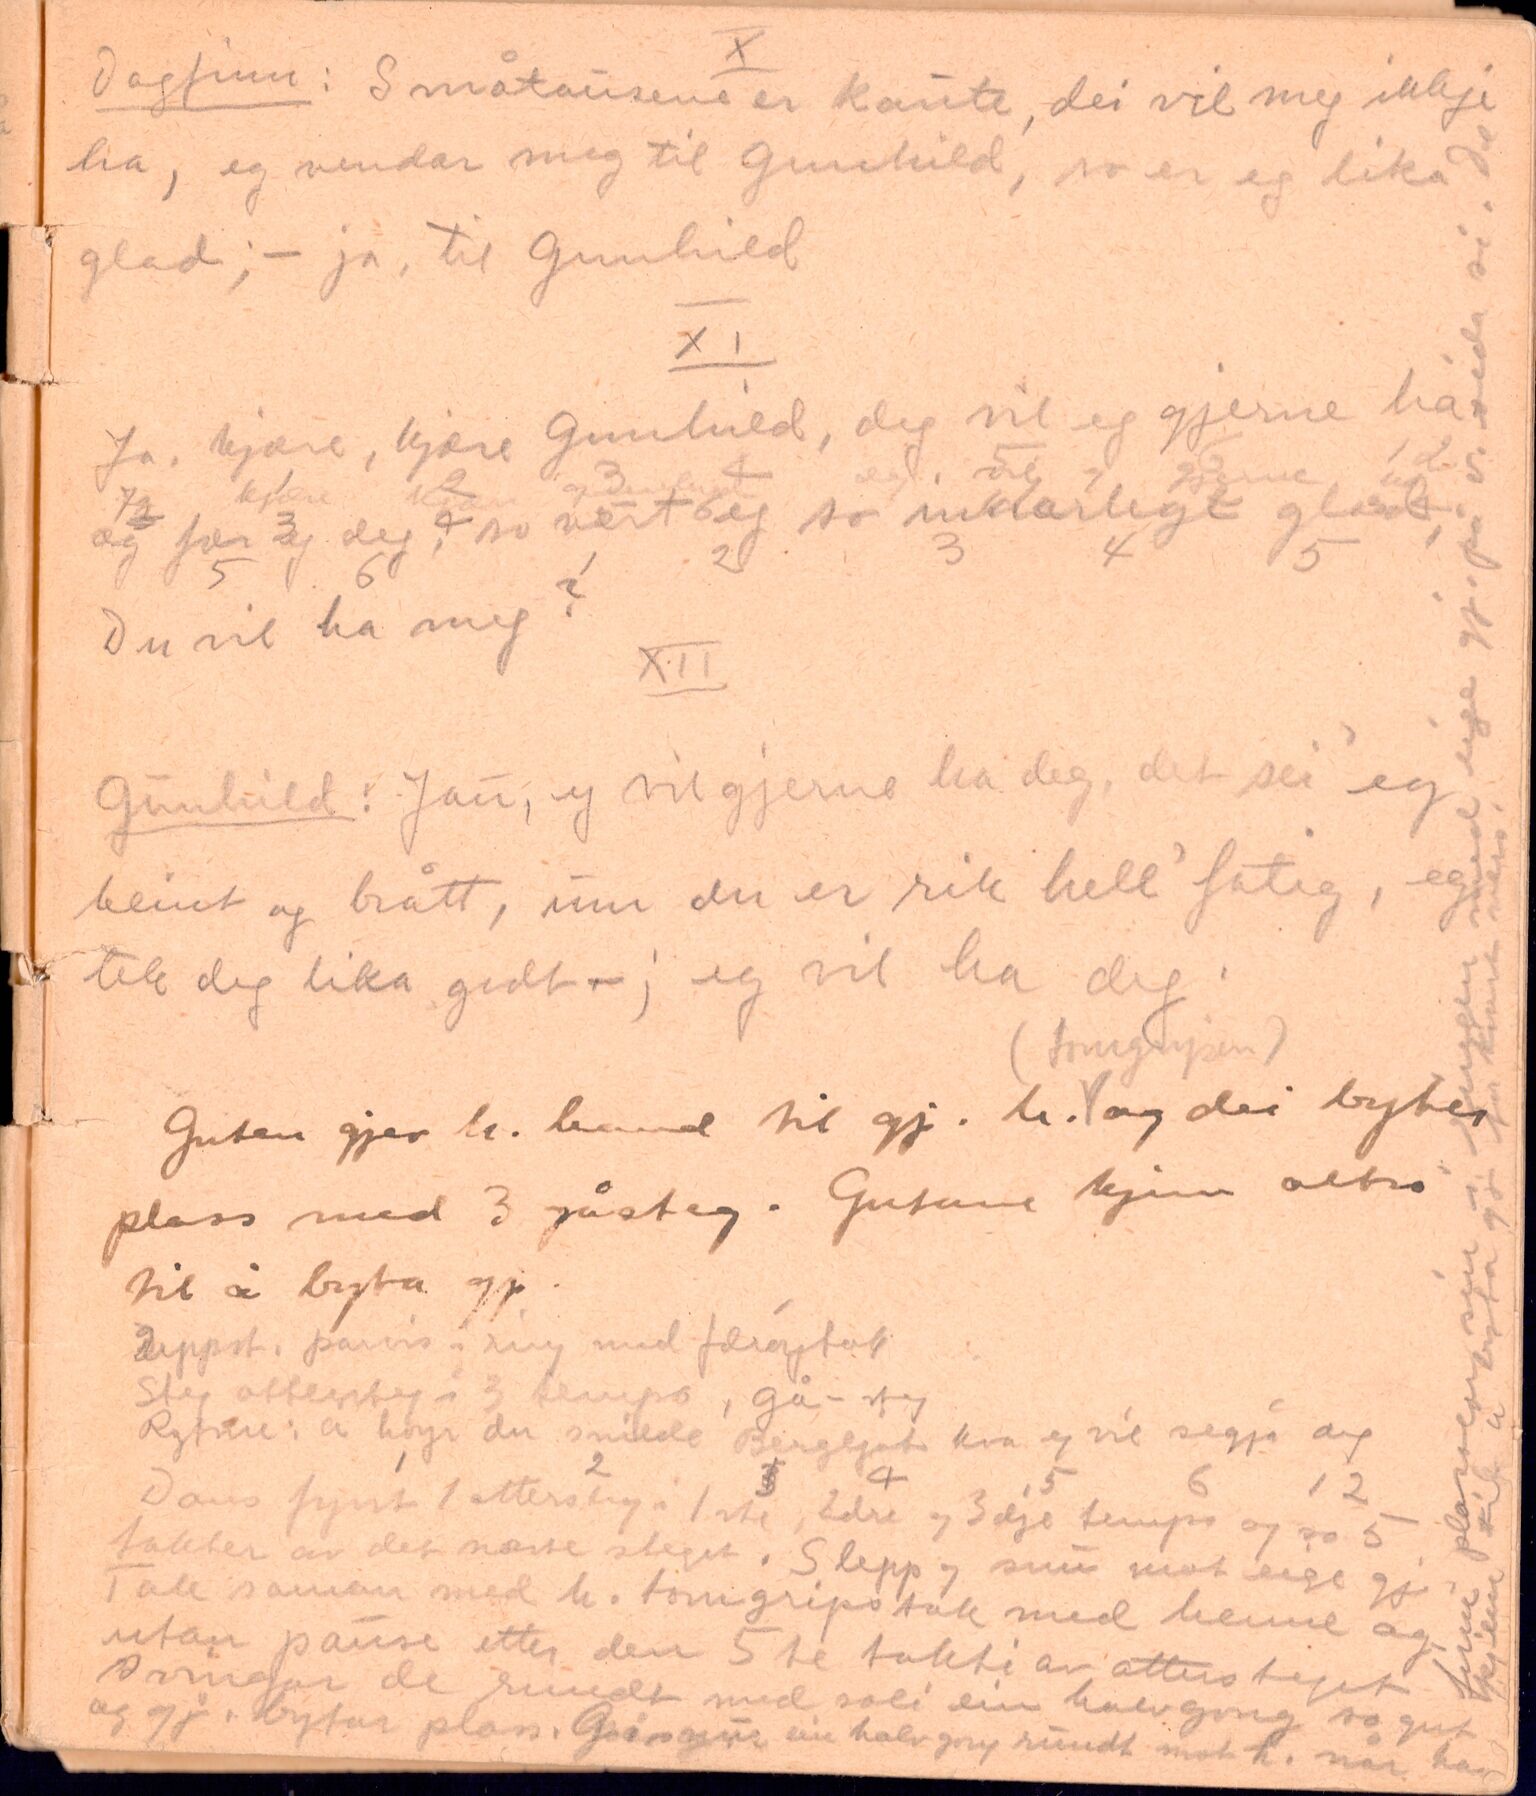 X
Dagfinn: Småtausene er kaute, dei vil meg ikkje
ha, eg vendar meg til Gunhild, so er eg lika
glad; – ja, til Gunhild
XI
Ja, kjære, kjære Gunhild, deg vil eg gjerne ha
1 2 3 4 5 6 1 2
og fær eg deg, so vert eg so inderlegt glad,
3 4 5 6 1 2 3 4 5
Du vil ha meg?
XII
Gunhild: Jau, eg vil gjerne ha deg, det sei' eg
beint og brått, um du er rik hell' fatig, eg
tek deg lika godt –; eg vil ha deg.
(tomgripen)
Guten gjev h. hand til gj. h. og dei byter
plass med 3 gåsteg. Gutane kjem altso
til å byta gj.
Uppst. parvis i ring med færøytak
Steg attersteg i 3 tempo, gå-steg
Rytme: Å høyr du snilde Bergljot kva eg vil segja deg
1 2 3 4 5 6 1 2
Dans fyrst 1 attersteg i 1ste, 2dre og 3dje tempo og so 5
takter av det neste steget. Slepp og snu mot eige gj.
Tak saman med h. tomgripstak med henne og
utan pause etter den 5te takti av attersteget
svingar de rundt med soli ein halv gong so gut
og gj. bytar plass. ein halv gong rundt mot h. når han
finn plassen sin i ringen med eige gj. på v. sida si. Dei
kjem til å byta gj. for kvart vers.